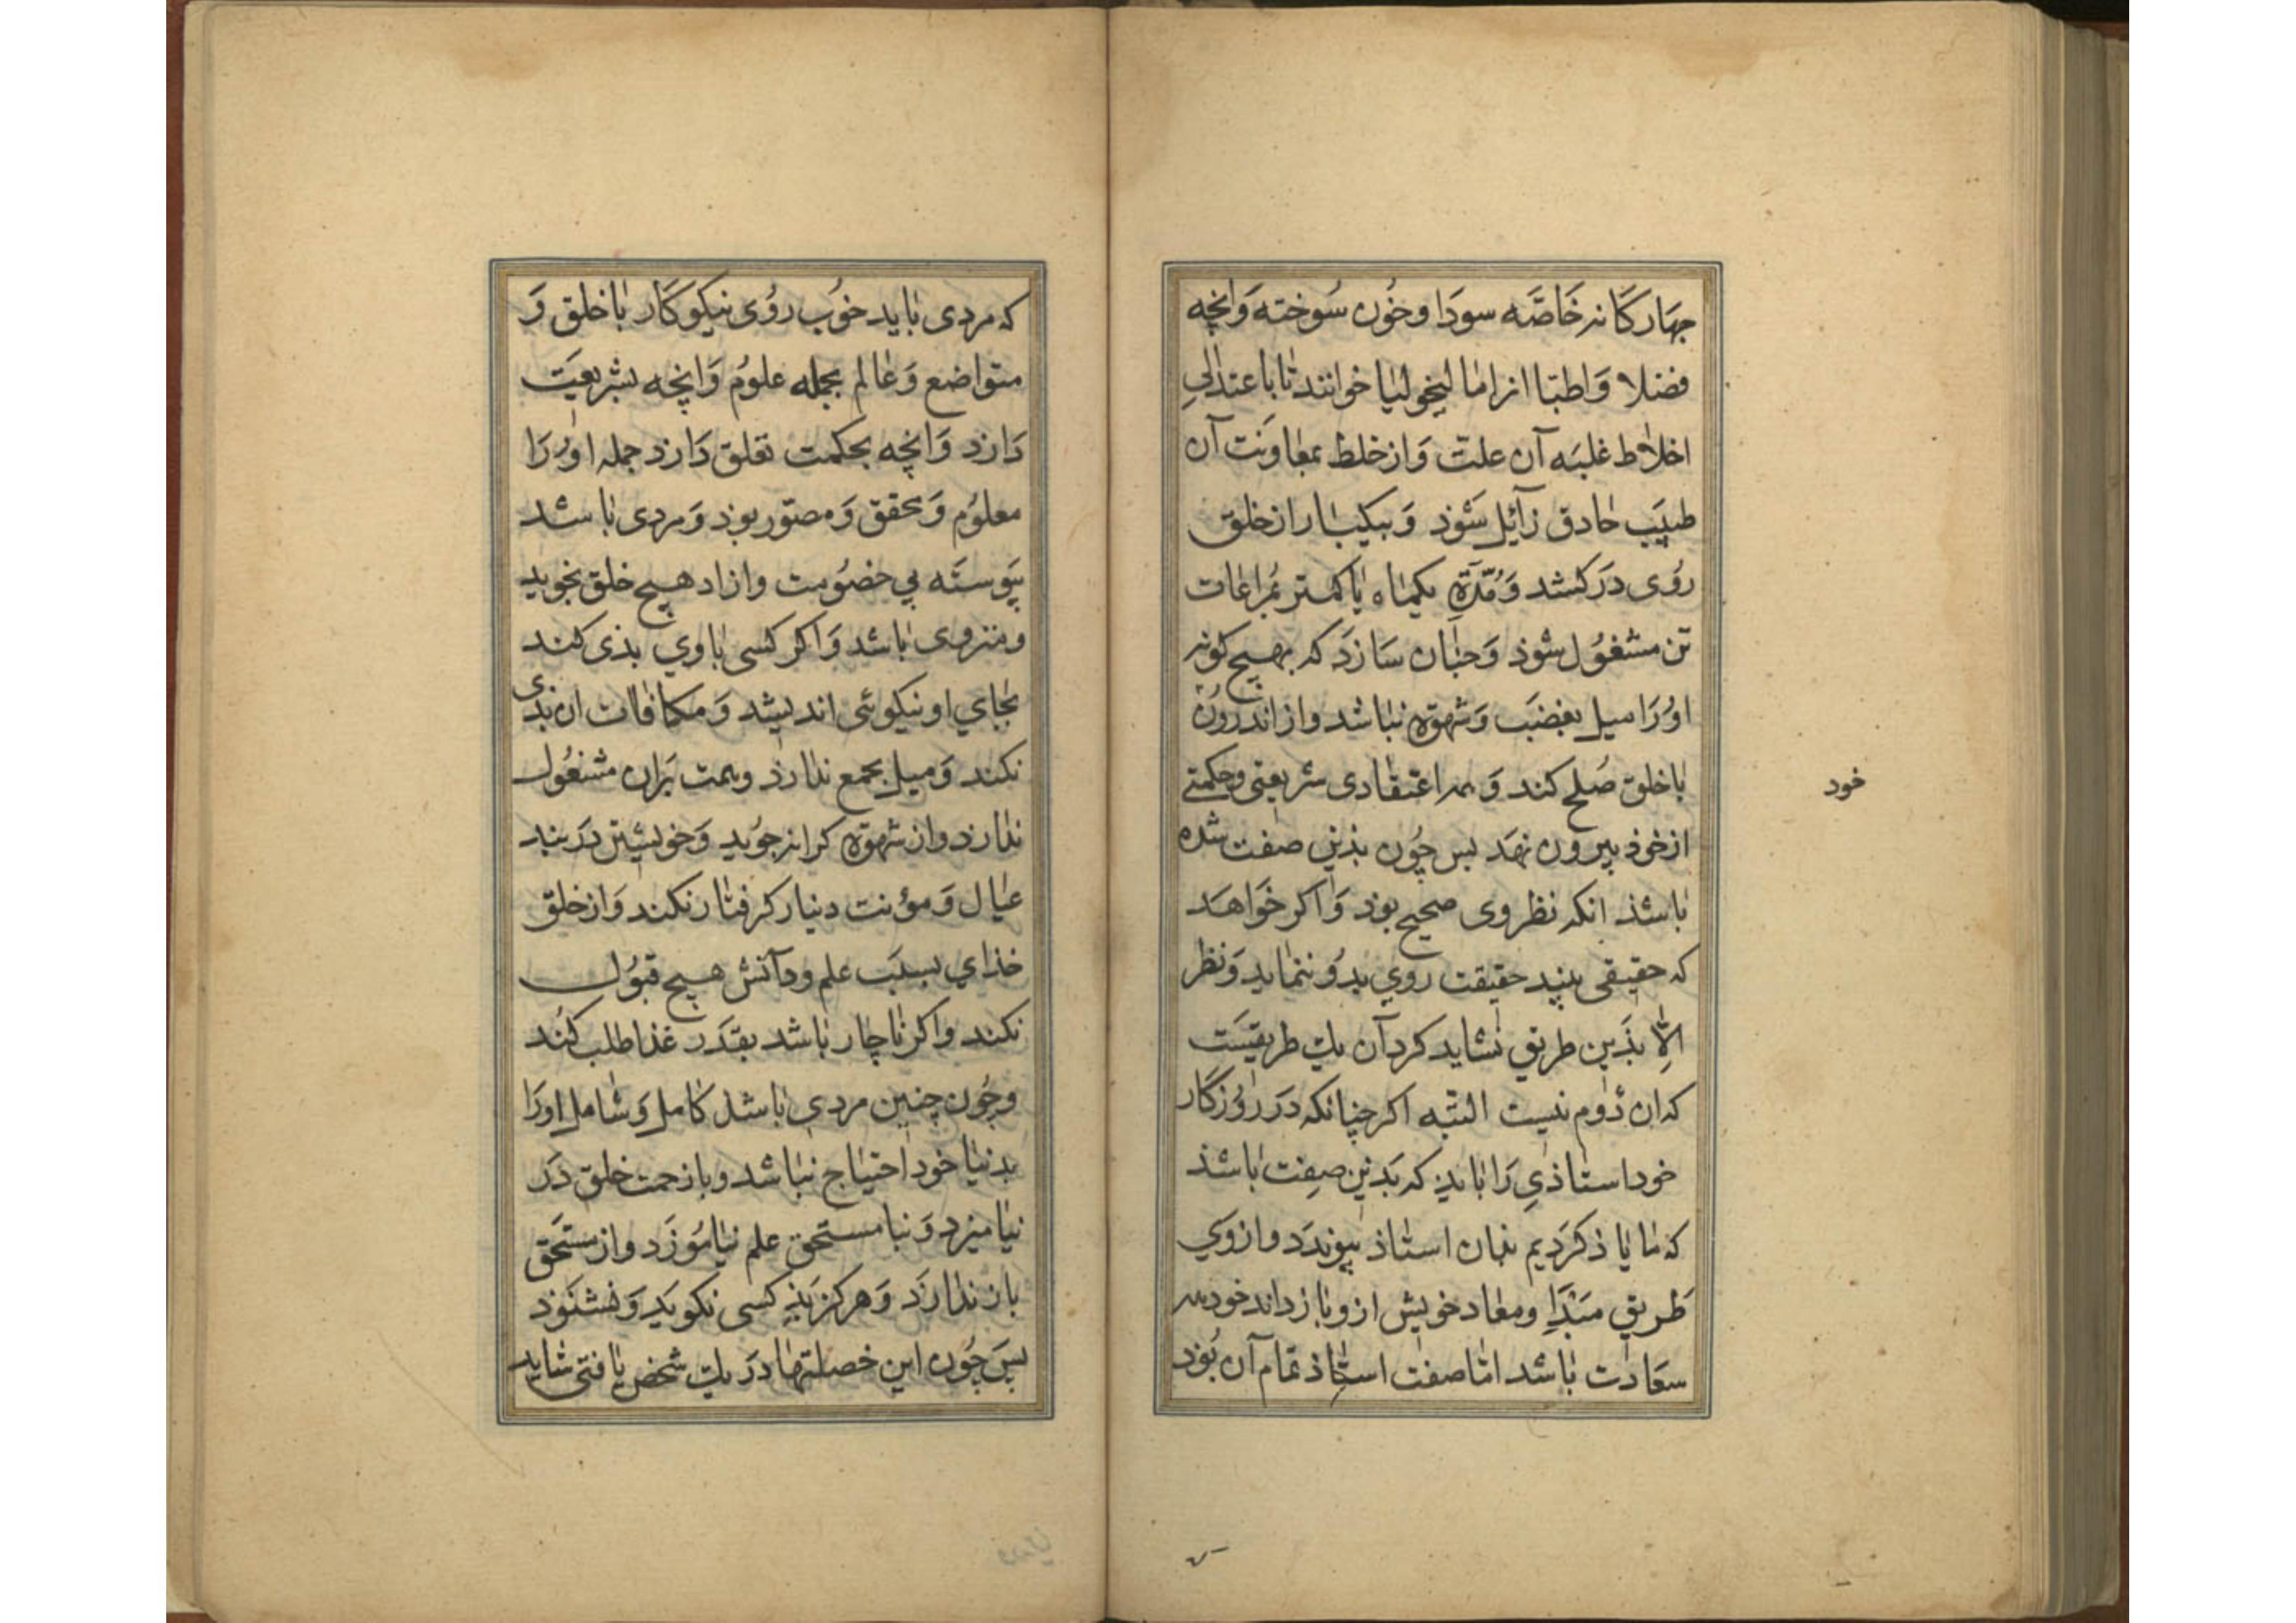 چهارگانه خَاصَّه سودَا وخُون سُوخته وَانچه
فضلا وَاطبّا انرا مالیخولیا خوانند تا باعتدالیِ
اخلاط غلبَه آن علت وَاز خلط بمعاوَنت آن
طبیَب حاذق زآئِل شَوذ وَبیکبار از خلق
رُوی دَرکشد وَمُدّةِ یکماه یا کمتر بمُراعات
تن مشغُول شوذ وَچنان سَازَد که بهیچ کونه
اوُرَا میل بغضَب وَشهوَة نباشد واز اندرُون
با خلق صُلح کند وَهمه اعتقادی شریعتی وحکمتی
از خوذ بیرون نهَد بس چُون بذین صفت شده
باشذ انکه نظر وی صحیح بوذ وَاکر خَواهَد
که حقیقی بیند حقیقت روی بدُو ننماید وَنظر
اِلّا بذَین طریق نشاید کرد آن یك طریقیَست
که ان دُوم نیست البتّه اکر چنانکه دَر رُوزکَار
خود استاذیِ رَا باید که بَدین صِفت باشذ
که ما یاذ کردَیم بدان استاذ بپوندَد واز وَی
طَریق مبَدَاِ ومعاد خویش ازو باز داند خود همه
سعَادت باشد امّا صفت استاذ تمام آن بُوَد
خود
که مردی باید خوُب رُوی نیکوکَار با خلق وَ
متواضع وَعالم بجمله علوُم وَانچه بشریعیَت
دَارد وَانچه بحکمت تعلق دَارد جمله اوُ رَا
معلوُم وَمحقق وَمصّور بوَد وَمردی باشد
پیوستَه بی خصُومت وازاد هیچ خلق نجوید
ومنزوی باشد وَاکر کسی با وی بذی کند
بجای او نیکوئی اندیشد وَمکافات ان بدی
نکند وَمیل بجمع ندارذ وهمت بَران مشغُول
ندارد واز شهوَة کرانه جوُید وَخویشتن دَر بند
عیال وَمؤنت دنیا کرفتار نکند وَاز خلق
خذای بسبَب علم ودآنش هیچ قبُول
نکند واکر ناچار باشد بقدَر غذا طلب کُند
وچُون چنین مردی باشذ کامل وَشامل اورَا
بدنیا خود احتیاج نباشد وبا زحمت خلق دَر
نیامیزد وَنبا مستحق علم نیامُوزَد واز مستحَق
باز ندارَد وَهرکز بَذِ کسی نکویَد وَنشنَوَد
پس چُون این خصلتها دَر یك شخص یافتی شاید